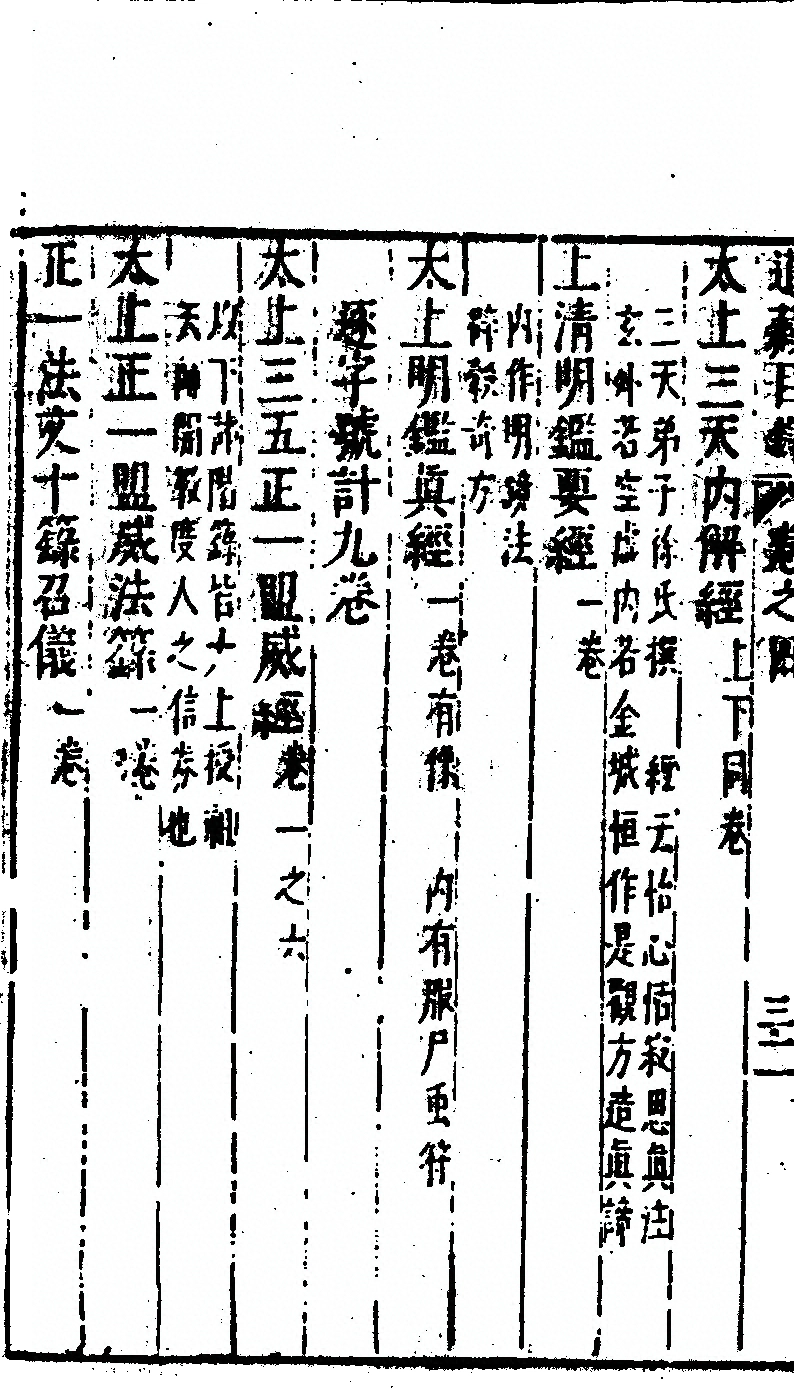 道藏目錄 卷之四 三二
太上三天內解經上下同卷
三天弟子徐氏撰 經云怡心恬寂思眞注
玄外若空虛內若金城恒作是觀方造眞諦
上清明鑑要經一卷
內作明鏡法
辟穀諸方
太上明鑑眞經一卷有像 內有服尸䖝符
逐字號計九卷
太上三五正一盟威經卷一之六
以下諸階籙皆太上授祖
天師開教度人之信券也
太上正一盟威法籙一卷
正一法文十籙召儀一卷